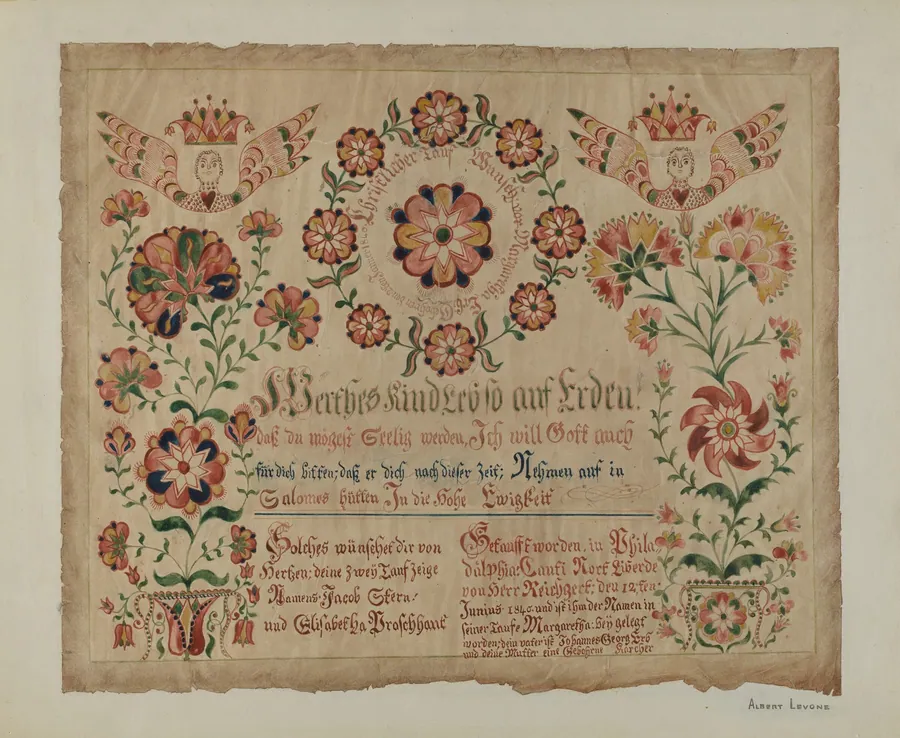 Christlicher Tauf Wunsch vor Margaretha Erb. Gebohren
Werthes Kind Leb so auf Erden!
daß du mögest Seelig werden, Ich will Gott auch
für dich bitten; daß er dich nach dieser Zeit; Nehmen auf in
Salomes hütten In die Hohe Ewigkeit
Solches wünschet dir von
Hertzen; deine zwey Tauf zeige
Namens Jacob Stern:
und Elisabetha Braschhant
Getaufft worden, in Phila,
dälphia: Caunti Nort Liberde
von Herr Reichzert; den 12,ten
Junius 1840. und ist ihm der Namen in
seiner Taufe Margaretha: bey gelegt
worden; dein vater ist Johannes Georg Erb
und deine Mutter eine Gebohrne Karcher
ALBERT LEVONE